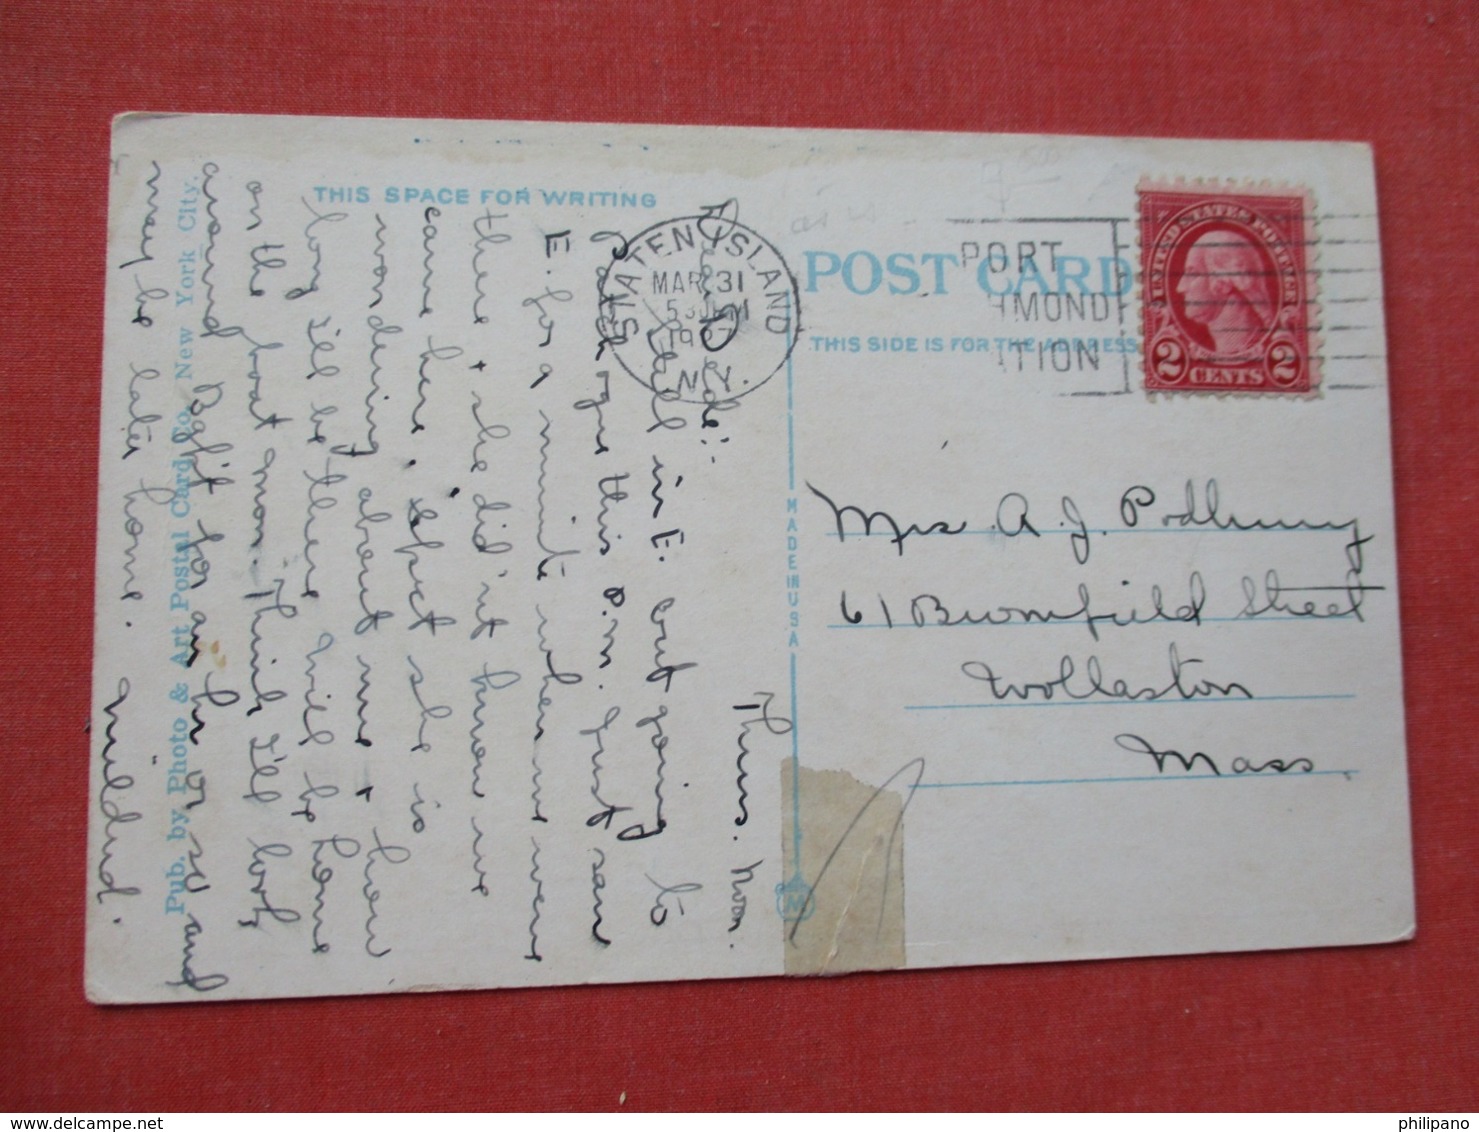 THIS SPACE FOR WRITING
Thurs. Noon.
Still in E. but going to
Patchogue this p.m. Just saw
E. for a minute when we were
there + she did'nt know we
came here. 'Spect she is
wondering about me + how
long I'll be there. Will be home
on the boat mon. Think I'll look
around Bab't for an hr or so and
may be later home.
Mildred.
Pub. by Photo & Art Postal Card Co. New York City.
STATEN ISLAND
MAR 31
5 30 PM
1927
N.Y.
PORT
HMOND
ITION
POST CARD
THIS SIDE IS FOR THE ADDRESS
UNITED STATES POSTAGE
2 CENTS 2
MADE IN USA
Mrs. A. J. Podbury
61 Bromfield Street
Wollaston
Mass.
philipano